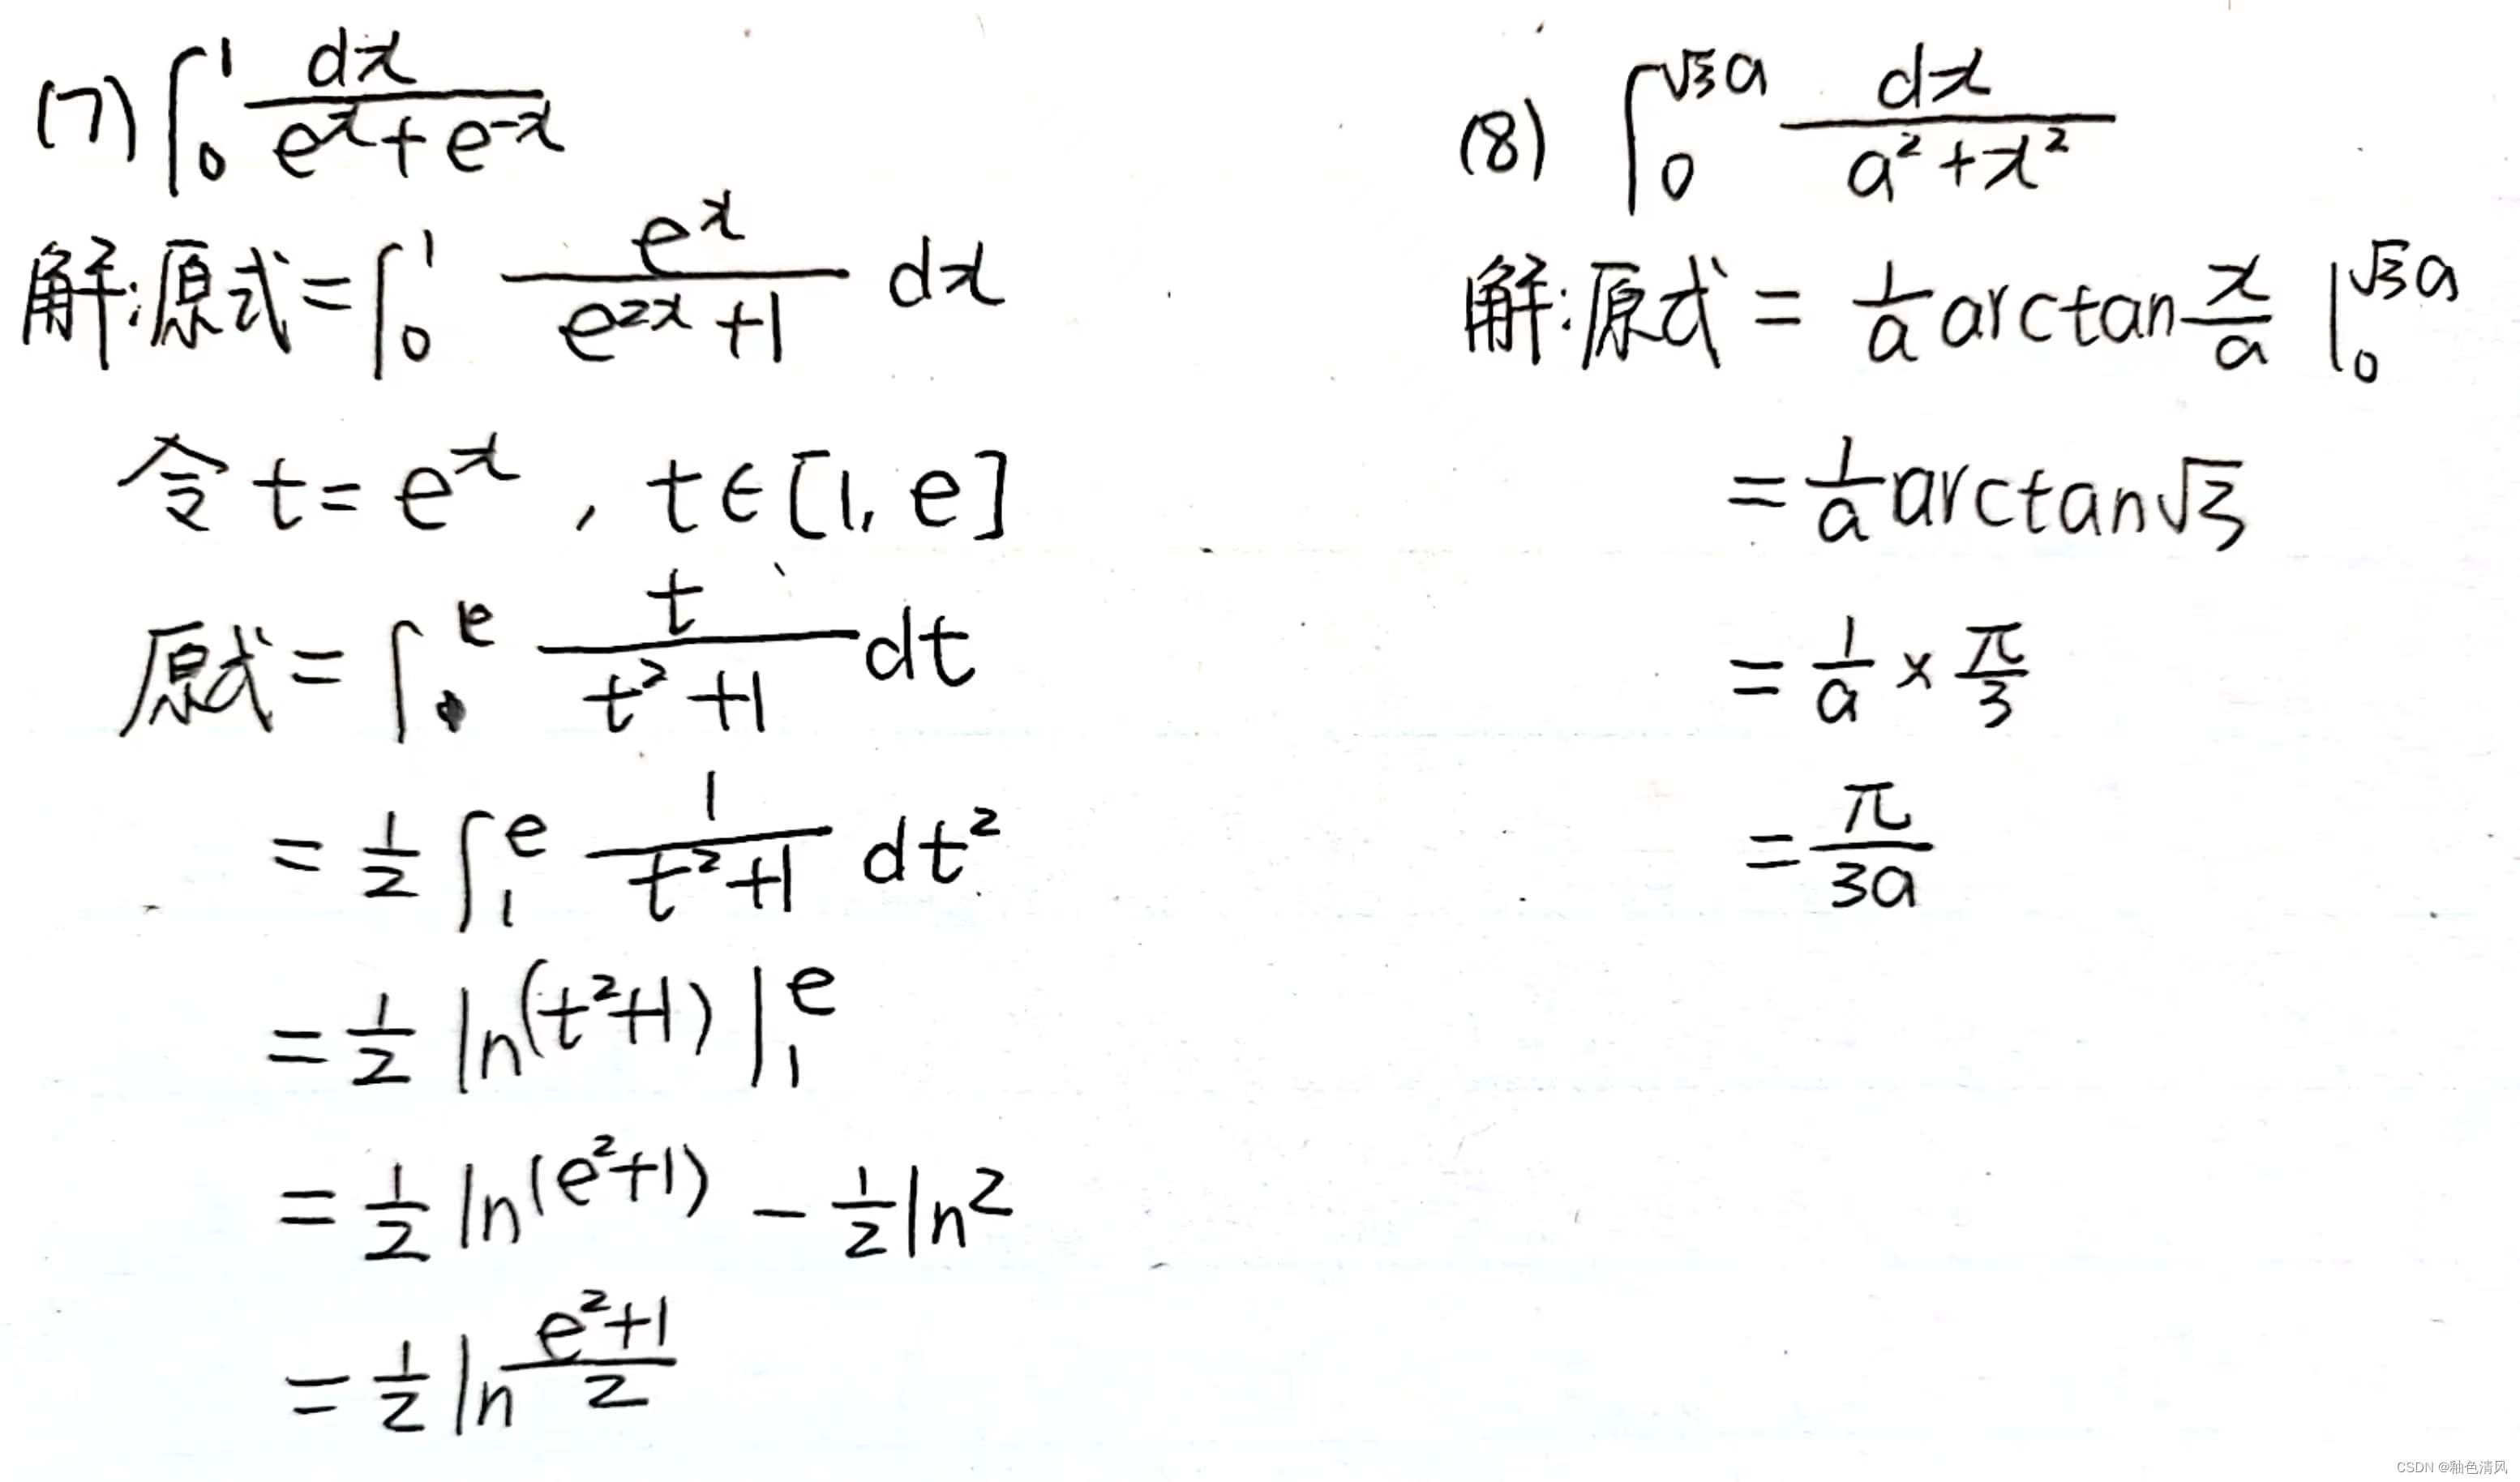 (7) ∫₀¹ dx/(eˣ+e⁻ˣ)
解:原式=∫₀¹ eˣ/(e²ˣ+1) dx
令t=eˣ,t∈[1,e]
原式=∫₁ᵉ t/(t²+1) dt
=1/2 ∫₁ᵉ 1/(t²+1) dt²
=1/2 ln(t²+1)|₁ᵉ
=1/2 ln(e²+1) - 1/2 ln2
=1/2 ln (e²+1)/2
(8) ∫₀^(√3a) dx/(a²+x²)
解:原式=1/a arctan x/a |₀^(√3a)
=1/a arctan√3
=1/a × π/3
=π/(3a)
CSDN @釉色清风